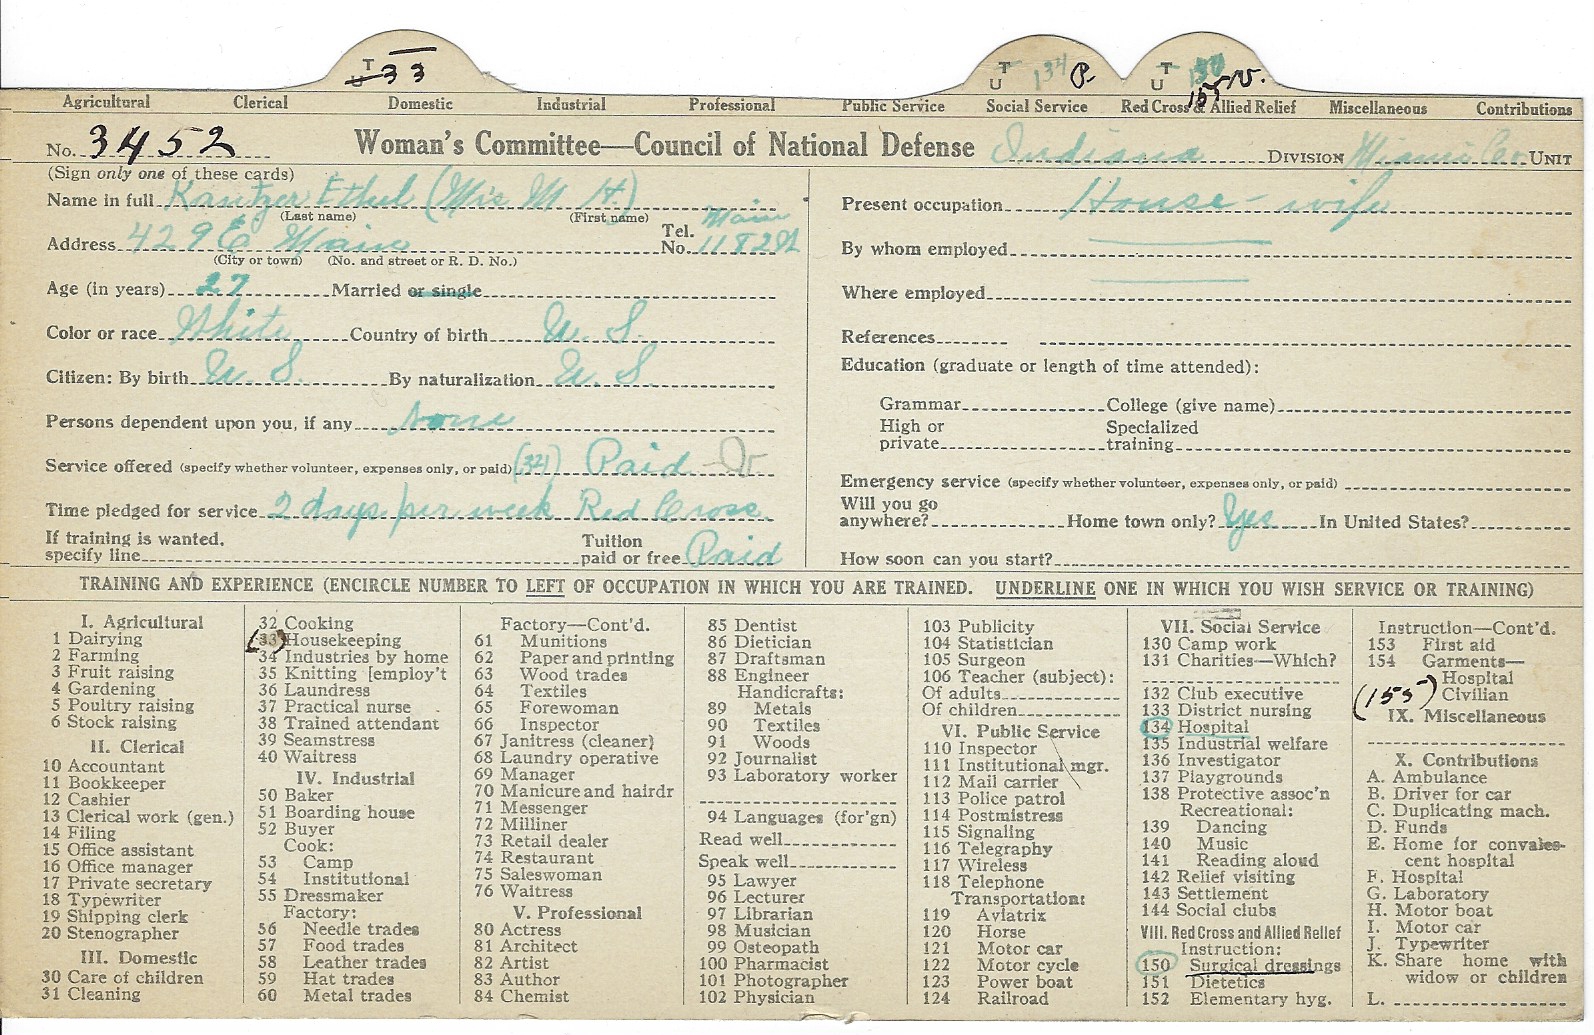 T
U 33
T
U 134 P.
T
U 150 V.
155
Agricultural Clerical Domestic Industrial Professional Public Service Social Service Red Cross & Allied Relief Miscellaneous Contributions
No. 3452 Woman's Committee—Council of National Defense Indiana DIVISION Miami Co. UNIT
(Sign only one of these cards)
Name in full Kantzer Ethel (Mrs M H.)
(Last name) (First name)
Address 429 E Main Tel. No. Main
(City or town) (No. and street or R. D. No.)
Age (in years) 27 Married or single
Color or race White Country of birth U. S.
Citizen: By birth U. S. By naturalization U. S.
Persons dependent upon you, if any none
Service offered (specify whether volunteer, expenses only, or paid) Paid
Time pledged for service 2 days per week Red Cross
If training is wanted, specify line Tuition paid or free Paid
Present occupation House-wife
By whom employed
Where employed
References
Education (graduate or length of time attended):
Grammar College (give name)
High or private Specialized training
Emergency service (specify whether volunteer, expenses only, or paid)
Will you go anywhere? Home town only? Yes In United States?
How soon can you start?
TRAINING AND EXPERIENCE (ENCIRCLE NUMBER TO LEFT OF OCCUPATION IN WHICH YOU ARE TRAINED. UNDERLINE ONE IN WHICH YOU WISH SERVICE OR TRAINING)
I. Agricultural
1 Dairying
2 Farming
3 Fruit raising
4 Gardening
5 Poultry raising
6 Stock raising
II. Clerical
10 Accountant
11 Bookkeeper
12 Cashier
13 Clerical work (gen.)
14 Filing
15 Office assistant
16 Office manager
17 Private secretary
18 Typewriter
19 Shipping clerk
20 Stenographer
III. Domestic
30 Care of children
31 Cleaning
32 Cooking
(33) Housekeeping
34 Industries by home
35 Knitting [employ't
36 Laundress
37 Practical nurse
38 Trained attendant
39 Seamstress
40 Waitress
IV. Industrial
50 Baker
51 Boarding house
52 Buyer
Cook:
53 Camp
54 Institutional
55 Dressmaker
Factory:
56 Needle trades
57 Food trades
58 Leather trades
59 Hat trades
60 Metal trades
Factory—Cont'd.
61 Munitions
62 Paper and printing
63 Wood trades
64 Textiles
65 Forewoman
66 Inspector
67 Janitress (cleaner)
68 Laundry operative
69 Manager
70 Manicure and hairdr
71 Messenger
72 Milliner
73 Retail dealer
74 Restaurant
75 Saleswoman
76 Waitress
V. Professional
80 Actress
81 Architect
82 Artist
83 Author
84 Chemist
85 Dentist
86 Dietician
87 Draftsman
88 Engineer
Handicrafts:
89 Metals
90 Textiles
91 Woods
92 Journalist
93 Laboratory worker
94 Languages (for'gn)
Read well
Speak well
95 Lawyer
96 Lecturer
97 Librarian
98 Musician
99 Osteopath
100 Pharmacist
101 Photographer
102 Physician
103 Publicity
104 Statistician
105 Surgeon
106 Teacher (subject):
Of adults
Of children
VI. Public Service
110 Inspector
111 Institutional mgr.
112 Mail carrier
113 Police patrol
114 Postmistress
115 Signaling
116 Telegraphy
117 Wireless
118 Telephone
Transportation:
119 Aviatrix
120 Horse
121 Motor car
122 Motor cycle
123 Power boat
124 Railroad
VII. Social Service
130 Camp work
131 Charities—Which?
132 Club executive
133 District nursing
134 Hospital
135 Industrial welfare
136 Investigator
137 Playgrounds
138 Protective assoc'n
Recreational:
139 Dancing
140 Music
141 Reading aloud
142 Relief visiting
143 Settlement
144 Social clubs
VIII. Red Cross and Allied Relief
Instruction:
150 Surgical dressings
151 Dietetics
152 Elementary hyg.
Instruction—Cont'd.
153 First aid
154 Garments—
Hospital
(155) Civilian
IX. Miscellaneous
X. Contributions
A. Ambulance
B. Driver for car
C. Duplicating mach.
D. Funds
E. Home for convalescent hospital
F. Hospital
G. Laboratory
H. Motor boat
I. Motor car
J. Typewriter
K. Share home with widow or children
L.